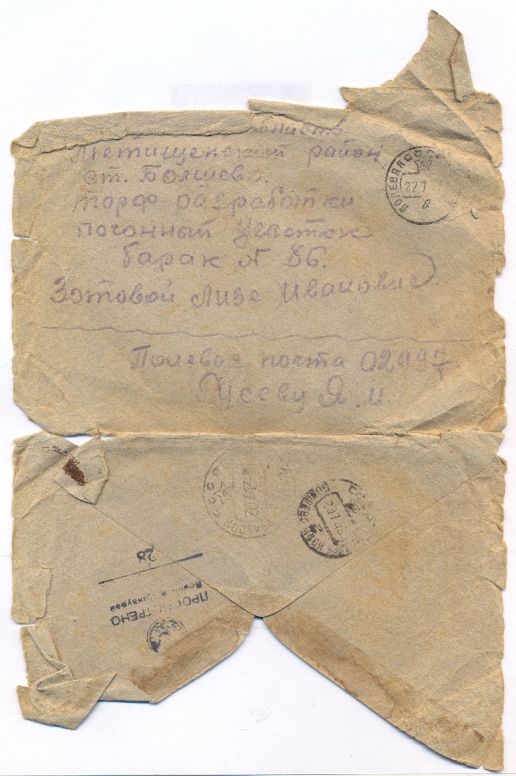 область
Метищенский район
ст. Болшево.
торф разработки
погонный участок
барак № 86.
Зотовой Лизе Ивановне
Полевая почта 02997
Гусеву Я. И
ПОЛЕВАЯ
22 7
28
ПРОСМОТРЕНО
Военной Цензурой